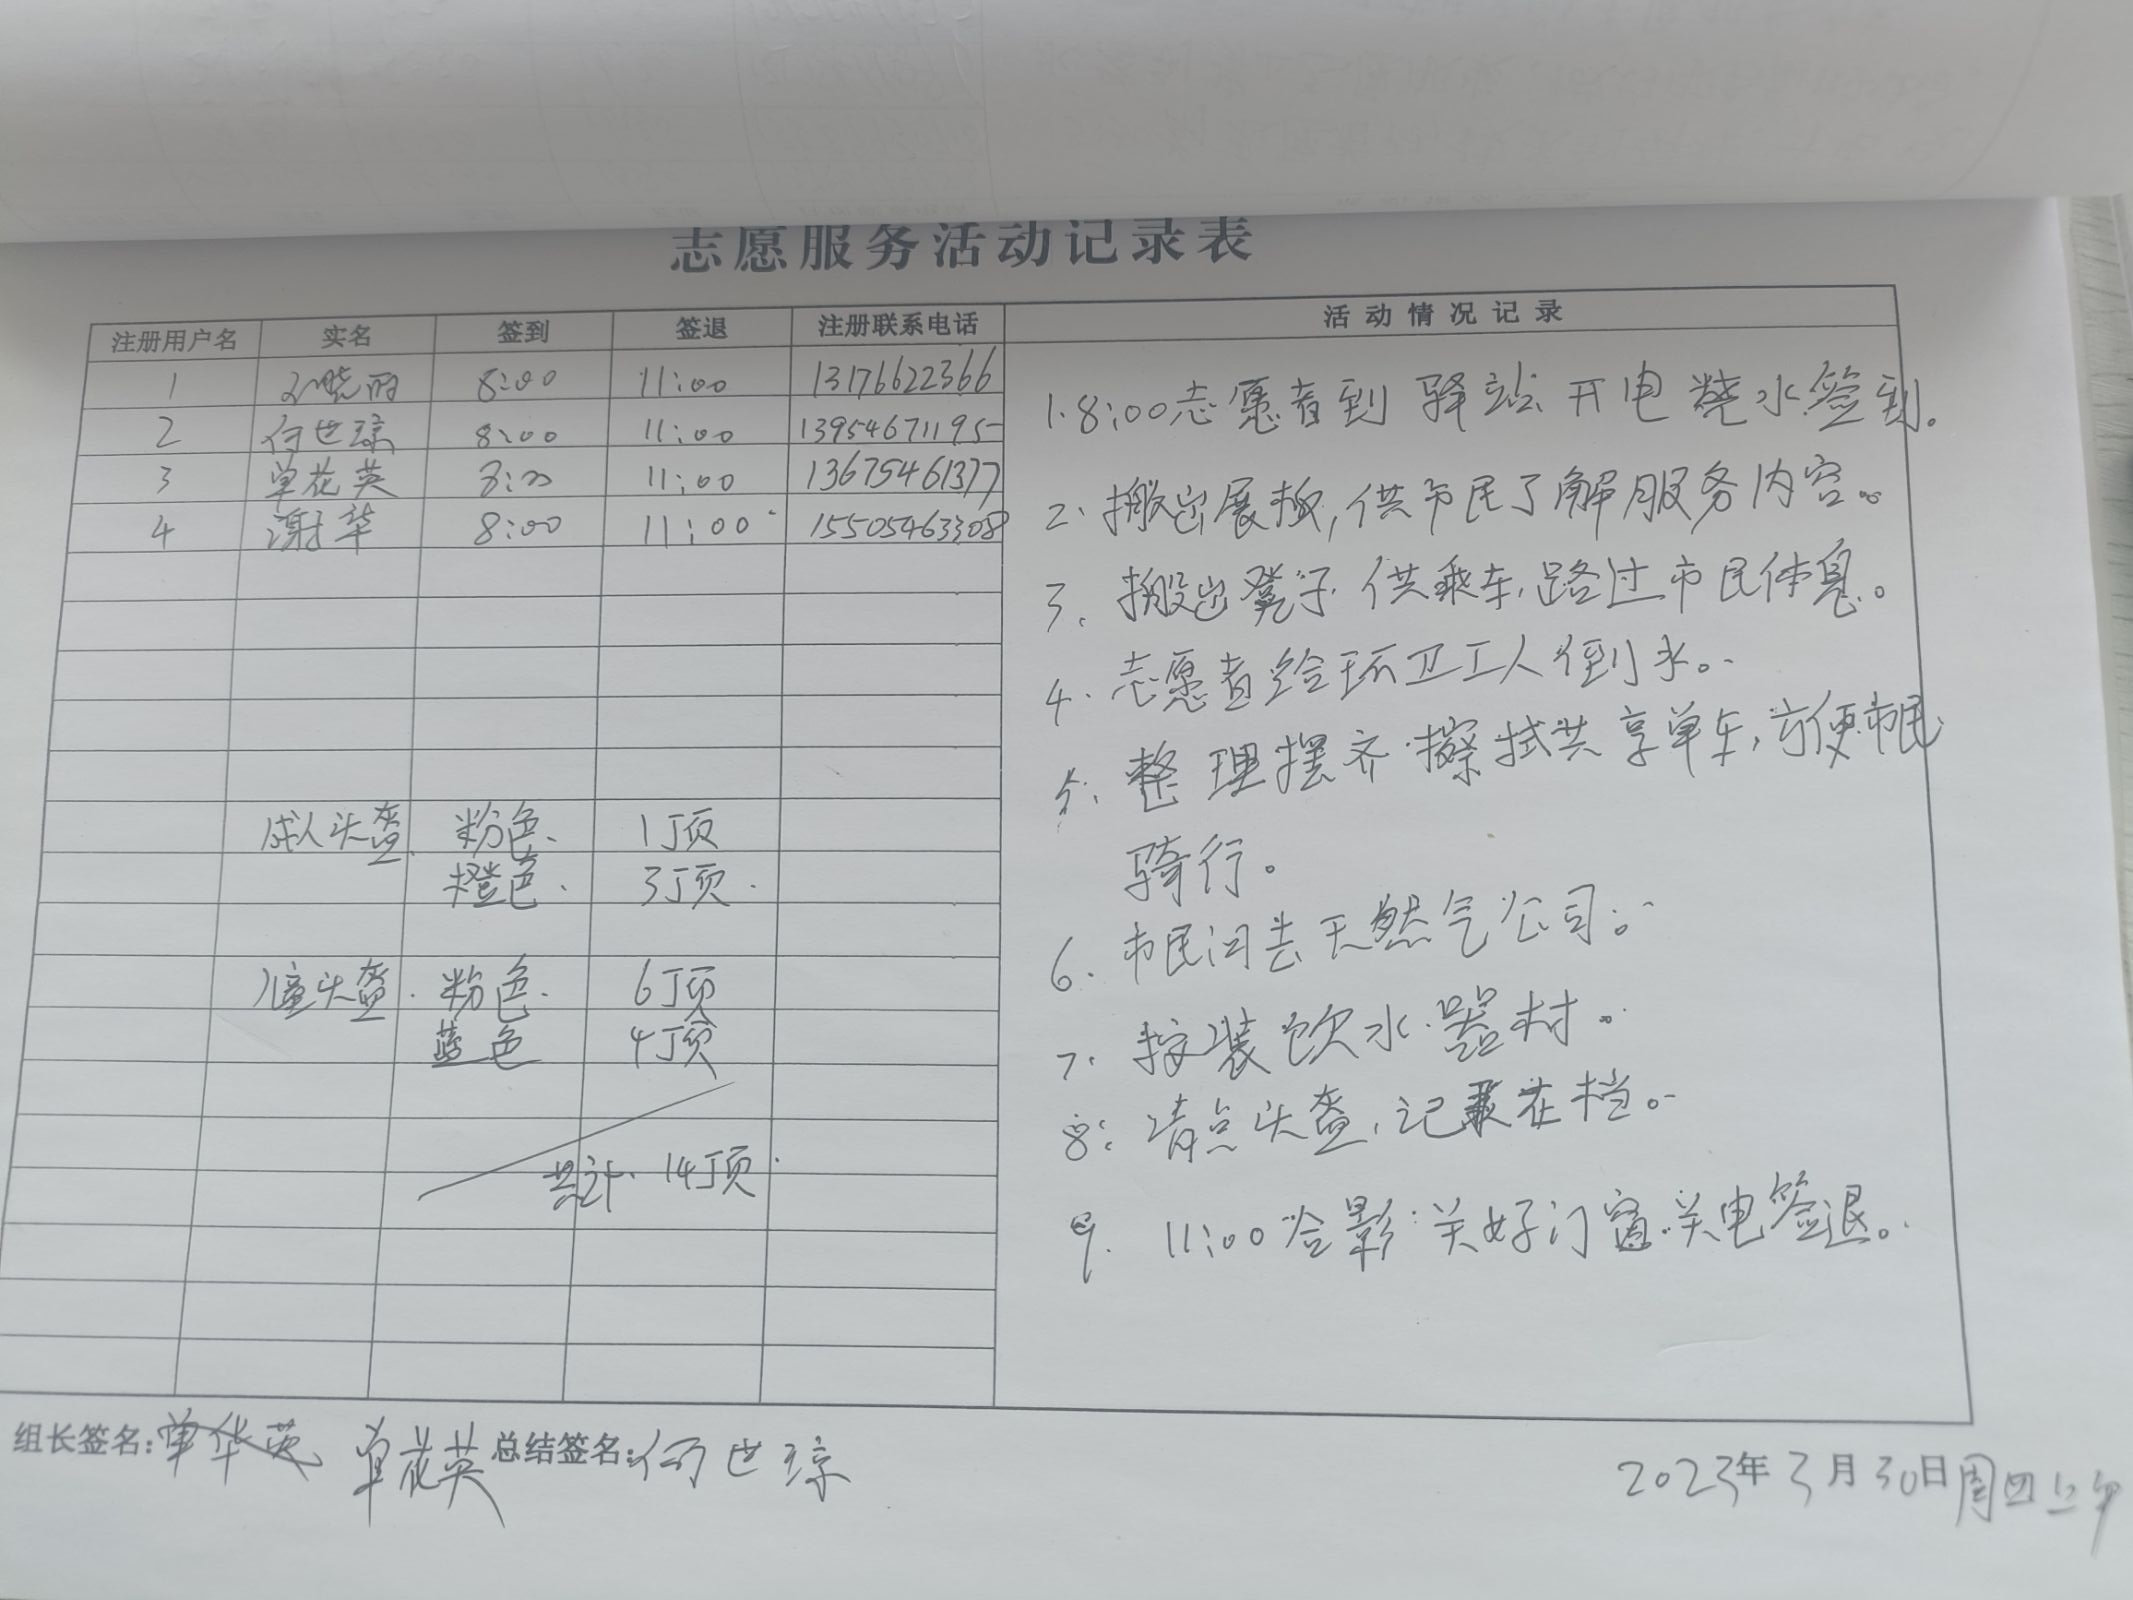 志愿服务活动记录表
注册用户名 实名 签到 签退 注册联系电话 活动情况记录
1 晓丽 8:00 11:00 13176622366
2 何世琼 8:00 11:00 13954671195
3 单花英 8:00 11:00 13675461377
4 谢华 8:00 11:00 15505463308
成人头盔 粉色 1顶
橙色 3顶
儿童头盔 粉色 6顶
蓝色 4顶
共计 14顶
1.8:00志愿者到驿站开电烧水签到。
2.搬出展板,供市民了解服务内容。
3.搬出凳子供乘车,路过市民休息。
4.志愿者给环卫工人倒水。
5.整理摆齐擦拭共享单车,方便市民
骑行。
6.市民问去天然气公司。
7.按装饮水器材。
8:清点头盔,记录在档。
9. 11:00合影关好门窗关电签退。
组长签名:单华英 单花英 总结签名:何世琼
2023年3月30日周四上午